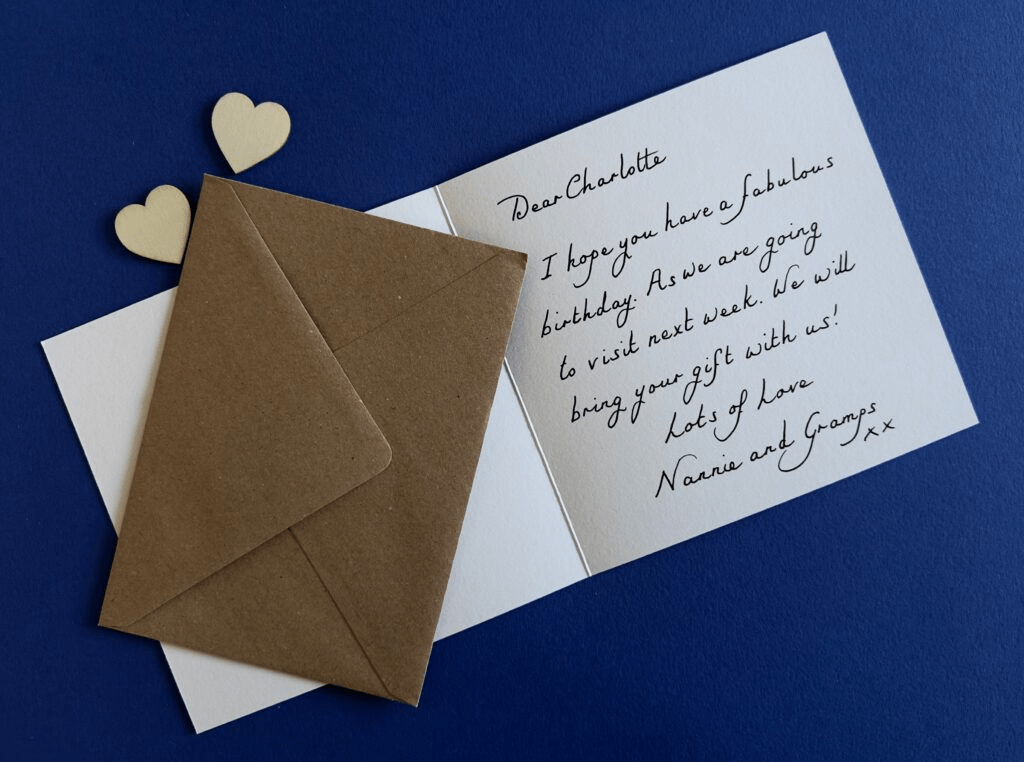 Dear Charlotte
I hope you have a fabulous
birthday. As we are going
to visit next week. We will
bring your gift with us!
Lots of Love
Nannie and Gramps
xx